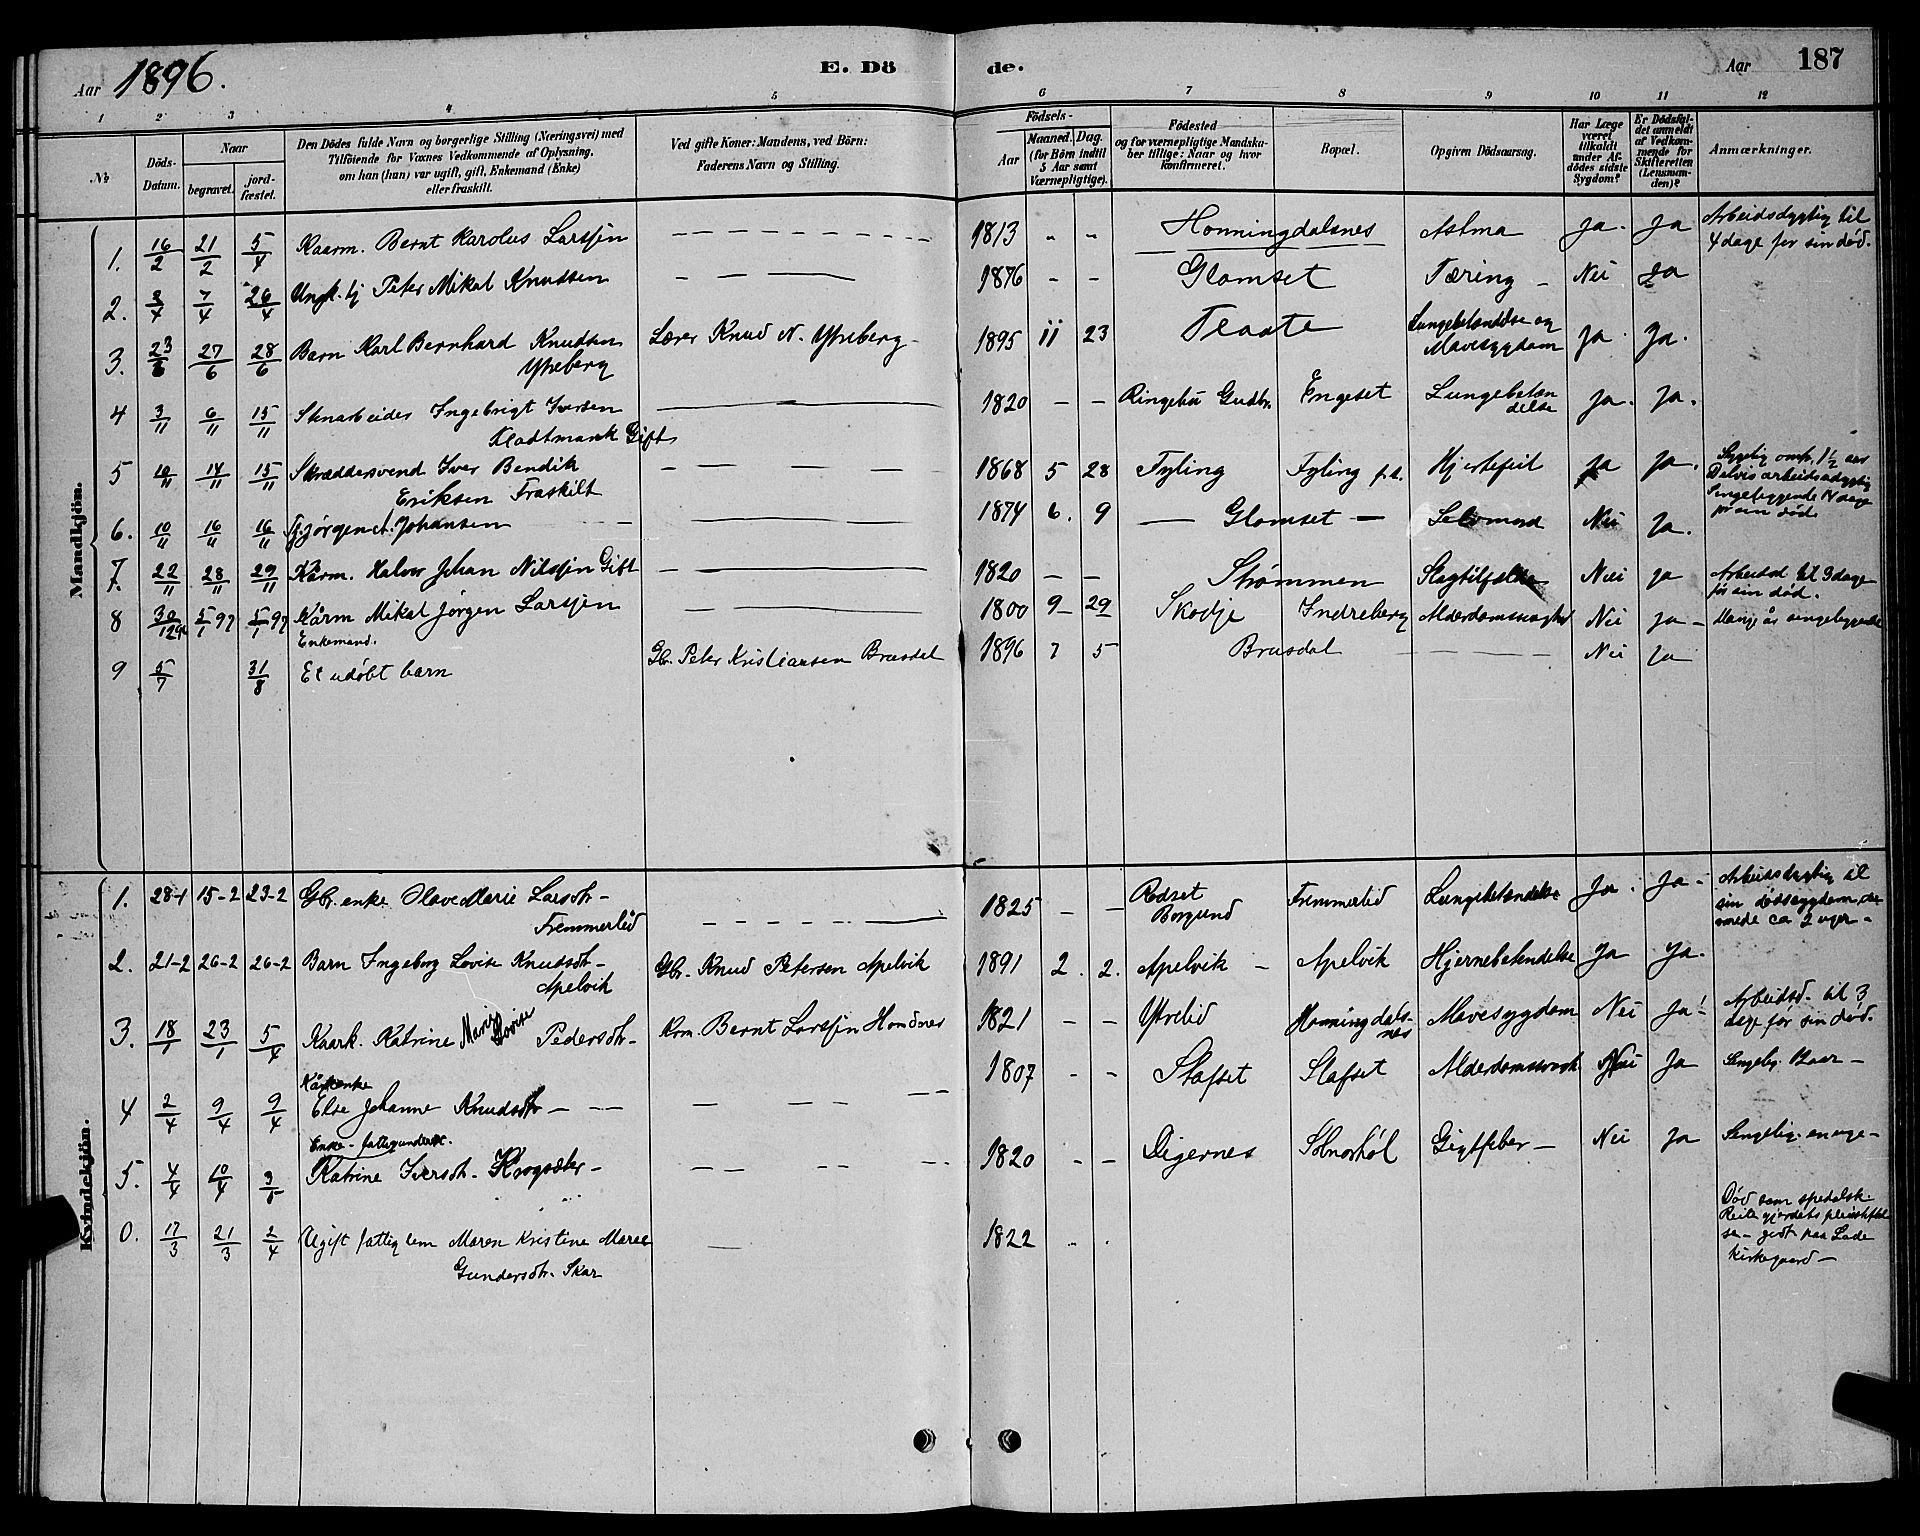 Aar 1896.
E. Döde.
Aar 187
1 2 3 4 5 6 7 8 9 10 11 12
№
Döds-Datum.
Naar
begravet.
jord-fæstet.
Den Dödes fulde Navn og borgerlige Stilling (Næringsvei) med
Tilföiende for Voxnes Vedkommende af Oplysning,
om han (hun) var ugift, gift, Enkemand (Enke)
eller fraskilt.
Ved gifte Koner: Mandens, ved Börn:
Faderens Navn og Stilling.
Födsels-
Aar
Maaned. Dag.
(for Börn indtil
5 Aar samt
Værnepligtige).
Födested
og for værnepligtige Mandska-
ber tillige: Naar og hvor
konfirmeret.
Bopæl.
Opgiven Dödsaarsag.
Har Læge
været
tilkaldt
under Af-
dödes sidste
Sygdom?
Er Dödsfal-
det anmeldt
af Vedkom-
mende for
Skifteretten
(Lensman-
den)?
Anmærkninger.
Mandkjön.
1. 16/2 21/2 5/4 Kaarm. Bernt Karolus Larssen 1813 Honningdalsnes Astma Ja. Ja Arbeidsdygtig til
4 dage før sin død.
2. 3/4 7/4 26/4 Ungk. Peter Mikal Knudsen 1876 - - Glomset Tæring - Nei Ja
3. 23/6 27/6 28/6 Barn Karl Bernhard Knudsen
Ytreberg Lærer Knud N. Ytreberg 1895 11 23 Traate Lungebetændelse og
Mavesygdom Ja. Ja.
4 3/11 6/11 15/11 Stenarbeider Ingebrigt Iversen
Kladtmark Gift 1820 - - Ringebu Gudbr. Engeset Lungebetæn
delse Ja. Ja.
5 10/11 14/11 15/11 Skræddersvend Iver Bendik
Eriksen Fraskilt 1868 5 28 Fylling Fylling Hjertefeil Ja Ja. Sygelig omtr. 1½ aar
Delvis arbeidsdygtig
Sengeliggende 14 dage
før sin død
6. 10/11 16/11 16/11 Jørgen Johansen 1874 6. 9 - Glomset - Selvmord Nei Ja.
7. 22/11 28/11 29/11 Kårm. Halvor Johan Nilssen Gift 1820 - - Strømmen Slagtilfælde Nei Ja Arbeidsd til 3 dage
før sin død.
8 30/12 5/1 97 5/1 97 Kårm Mikal Jørgen Larssen
Enkemand. 1800 9 29 Skodje Indreberg Alderdomssvaghed Nei Ja - Mange år sengeliggende
9 5/7 31/8 Et udøbt barn Gbr. Peter Kristiansen Brusdal 1896 7 5 Brusdal Nei Ja
Kvindekjön.
1. 28-1 15-2 23-2 Gbr. enke Olave Marie Larsdtr-
Fremmerlid 1825 - - Rødset
Borgund Fremmerlid Lungebetændelse Ja. Ja - Arbeidsdygtig til
sin dødssygdom, der
varede ca 2 uger -
2. 21-2 26-2 26-2 Barn Ingeborg Lovise Knudsdtr-
Apelvik Gbr. Knud Petersen Apelvik 1891 2. 2. Apelvik - Apelvik Hjernebetændelse Ja Ja.
3. 18/1 23/1 5/4 Kaark. Katrine Marie Lovise Pedersdtr- Krm. Bernt Larssen Hondnes 1821 - - Ytrelid Honningdals-
nes Mavesygdom Nei Ja! Arbeidsd. til 3
dage før sin død.
4 2/4 9/4 9/4 Kårenke
Else Johanne Knudsdtr - 1807 - - Stafset Stafset Alderdomssvagh Nei Ja Sengelig. 12 aar -
5. 4/4 10/4 3/5 Enke - fattigunderst.
Katrine Iversdtr. 1820 - - Digernes Solnorhøl Gigtfeber - Nei Ja Sengelig. en uge -
0. 17/3 21/3 2/4 Ugift fattiglem Maren Kristine Marie
Gundersdtr. Skar 1822 Død som spedalsk.
Reitgjerdets pleiestiftel
se - gvdt paa Lade
kirkegaard -